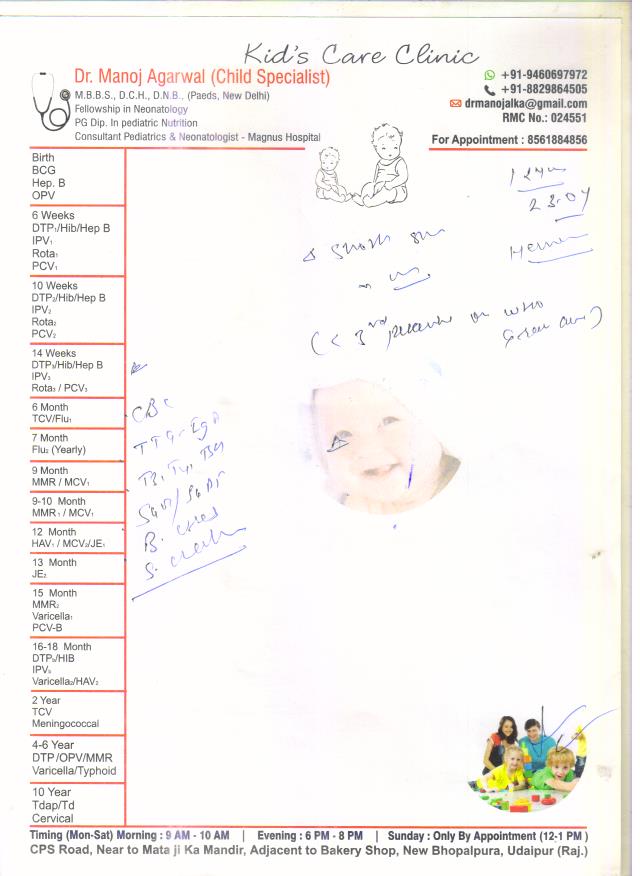 Kid's Care Clinic
Dr. Manoj Agarwal (Child Specialist)
M.B.B.S., D.C.H., D.N.B., (Paeds, New Delhi)
Fellowship in Neonatology
PG Dip. In pediatric Nutrition
Consultant Pediatrics & Neonatologist - Magnus Hospital
+91-9460697972
+91-8829864505
drmanojalka@gmail.com
RMC No.: 024551
For Appointment : 8561884856
Birth
BCG
Hep. B
OPV
6 Weeks
DTP₁/Hib/Hep B
IPV₁
Rota₁
PCV₁
10 Weeks
DTP₂/Hib/Hep B
IPV₂
Rota₂
PCV₂
14 Weeks
DTP₃/Hib/Hep B
IPV₃
Rota₃ / PCV₃
6 Month
TCV/Flu₁
7 Month
Flu₂ (Yearly)
9 Month
MMR / MCV₁
9-10 Month
MMR₁ / MCV₁
12 Month
HAV₁ / MCV₂/JE₁
13 Month
JE₂
15 Month
MMR₂
Varicella₁
PCV-B
16-18 Month
DTP₅/HIB
IPV₅
Varicella₂/HAV₂
2 Year
TCV
Meningococcal
4-6 Year
DTP/OPV/MMR
Varicella/Typhoid
10 Year
Tdap/Td
Cervical
23.04
Short
(< 3rd on WHO
CBC
TTG-IgA
Timing (Mon-Sat) Morning : 9 AM - 10 AM | Evening : 6 PM - 8 PM | Sunday : Only By Appointment (12-1 PM )
CPS Road, Near to Mata ji Ka Mandir, Adjacent to Bakery Shop, New Bhopalpura, Udaipur (Raj.)